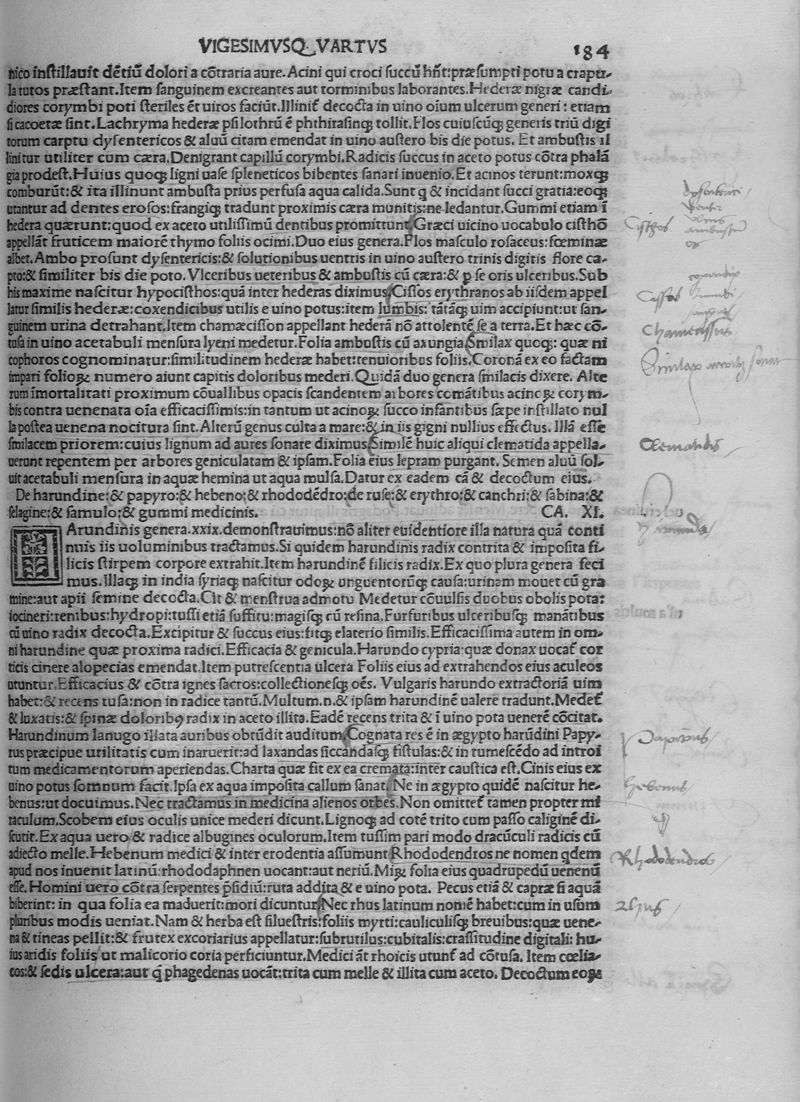 VIGESIMVSQVARTVS
184
nico instillauit dẽtiũ dolori a cõtraria aure. Acini qui croci succũ hñt: præsumpti potu a crapu-
la tutos præstant. Item sanguinem excreantes aut torminibus laborantes. Hederæ nigræ candi-
diores corymbi poti steriles ẽt uiros faciũt. Illinit̃ decocta in uino oium ulcerum generi: etiam
si cacoetæ sint. Lachryma hederæ psilothrũ ẽ phthirasinq; tollit. Flos cuiuscũq; generis triũ digi
torum carptu dysentericos & aluũ citam emendat in uino austero bis die potus. Et ambustis il
linitur utiliter cum cæra. Denigrant capillũ corymbi. Radicis succus in aceto potus cõtra phalã
gia prodest. Huius quoq; ligni uase spleneticos bibentes sanari inuenio. Et acinos terunt: moxq;
comburũt: & ita illinunt ambusta prius perfusa aqua calida. Sunt q & incidant succi gratia: eoq;
utantur ad dentes erosos: frangiq; tradunt proximis cæra munitis: ne ledantur. Gummi etiam ĩ
hedera quærunt: quod ex aceto utilissimũ dentibus promittunt. Græci uicino uocabulo cisthõ
appellãt fruticem maiorẽ thymo foliis ocimi. Duo eius genera. Flos masculo rosaceus: fœminæ
albet. Ambo prosunt dysentericis: & solutionibus uentris in uino austero trinis digitis flore ca-
pto: & similiter bis die poto. Vlceribus ueteribus & ambustis cũ cæra: & p se oris ulceribus. Sub
his maxime nascitur hypocisthos: quã inter hederas diximus. Cissos erythranos ab iisdem appel
latur similis hederæ: coxendicibus utilis e uino potus: item lumbis: tãtãq; uim accipiunt: ut san-
guinem urina detrahant. Item chamæcisson appellant hederã nõ attolentẽ se a terra. Et hæc cõ-
tusa in uino acetabuli mensura lyeni medetur. Folia ambustis cũ axungia. Smilax quoq;: quæ ni
cophoros cognominatur: similitudinem hederæ habet: tenuioribus foliis. Coronã ex eo factam
impari folioꝝ numero aiunt capitis doloribus mederi. Quidã duo genera smilacis dixere. Alte
rum ĩmortalitati proximum cõuallibus opacis scandentem arbores comãtibus acinoꝝ corym-
bis contra uenenata oĩa efficacissimis: in tantum ut acinoꝝ succo infãtibus sæpe instillato nul
la postea uenena nocitura sint. Alterũ genus culta amare: & in iis gigni nullius effectus. Illã esse
smilacem priorem: cuius lignum ad aures sonare diximus. Similẽ huic aliqui clematida appella-
uerunt repentem per arbores geniculatam & ipsam. Folia eius lepram purgant. Semen aluũ sol-
uit acetabuli mensura in aquæ hemina ut aqua mulsa. Datur ex eadem cã & decoctum eius.
De harundine: & papyro: & hebeno: & rhododẽdro: de ruse: & erythro: & canchri: & sabina: &
selagine: & samulo: & gummi medicinis. CA. XI.
HArundinis genera .xxix. demonstrauimus: nõ aliter euidentiore illa natura quã conti
nuis iis uoluminibus tractamus. Si quidem harundinis radix contrita & imposita fi-
licis stirpem corpore extrahit. Item harundinẽ filicis radix. Ex quo plura genera feci
mus. Illaq; in india syriaq; nascitur odoꝝ unguentorũq; causa: urinam mouet cũ gra
mine: aut apii semine decocta. Cit & menstrua admotu Medetur cõuulsis duobus obolis pota:
iocineri: renibus: hydropi: tussi etiã suffitu: magisq; cũ resina. Furfuribus ulceribusq; manãtibus
cũ uino radix decocta. Excipitur & succus eius: fitq; elaterio similis. Efficacissima autem in om-
ni harundine quæ proxima radici. Efficacia & genicula. Harundo cypria: quæ donax uocat̃ cor
ticis cinere alopecias emendat. Item putrescentia ulcera Foliis eius ad extrahendos eius aculeos
utuntur. Efficacius & cõtra ignes sacros: collectionesq; oẽs. Vulgaris harundo extractoriã uim
habet: & recens tusa: non in radice tantũ. Multum .n. & ipsam harundinẽ ualere tradunt. Medet̃
& luxatis: & spinæ dolorib9 radix in aceto illita. Eadẽ recens trita & ĩ uino pota uenerẽ cõcitat.
Harundinum lanugo illata auribus obtũdit auditum. Cognata res ẽ in ægypto harũdini Papy-
rus præcipue utilitatis cum inaruerit: ad laxandas siccandasq; fistulas: & in tumescẽdo ad introi
tum medicamentorum aperiendas. Charta quæ fit ex ea cremata: inter caustica est. Cinis eius ex
uino potus somnum facit. Ipsa ex aqua imposita callum sanat. Ne in ægypto quidẽ nascitur he-
benus: ut docuimus. Nec tractamus in medicina alienos orbes. Non omittet̃ tamen propter mi
raculum. Scobem eius oculis unice mederi dicunt. Lignoq; ad cotẽ trito cum passo caliginẽ di-
scutit. Ex aqua uero & radice albugines oculorum. Item tussim pari modo dracũculi radicis cũ
adiecto melle. Hebenum medici & inter erodentia assumunt. Rhododendros ne nomen qdem
apud nos inuenit latinũ: rhododaphnen uocant: aut neriũ. Miꝝ folia eius quadrupedũ uenenũ
esse. Homini uero cõtra serpentes p̃sidiũ: ruta addita & e uino pota. Pecus etiã & capræ si aquã
biberint: in qua folia ea maduerit: mori dicuntur. Nec rhus latinum nomẽ habet: cum in usum
pluribus modis ueniat. Nam & herba est siluestris: foliis myrti: cauliculisq; breuibus: quæ uene-
na & tineas pellit: & frutex excoriarius appellatur: subrutilus: cubitalis: crassitudine digitali: hu-
ius aridis foliis ut malicorio coria perficiuntur. Medici ãt rhoicis utunt̃ ad cõtusa. Item cœlia-
cos: & sedis ulcera: aut q̃ phagedenas uocãt: trita cum melle & illita cum aceto. Decoctum eoꝝ